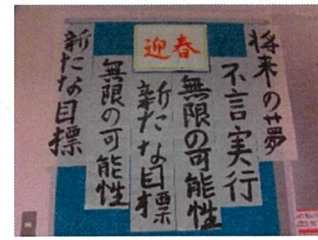 迎春
将来の夢
不言実行
無限の可能性
新たな目標
無限の可能性
新たな目標